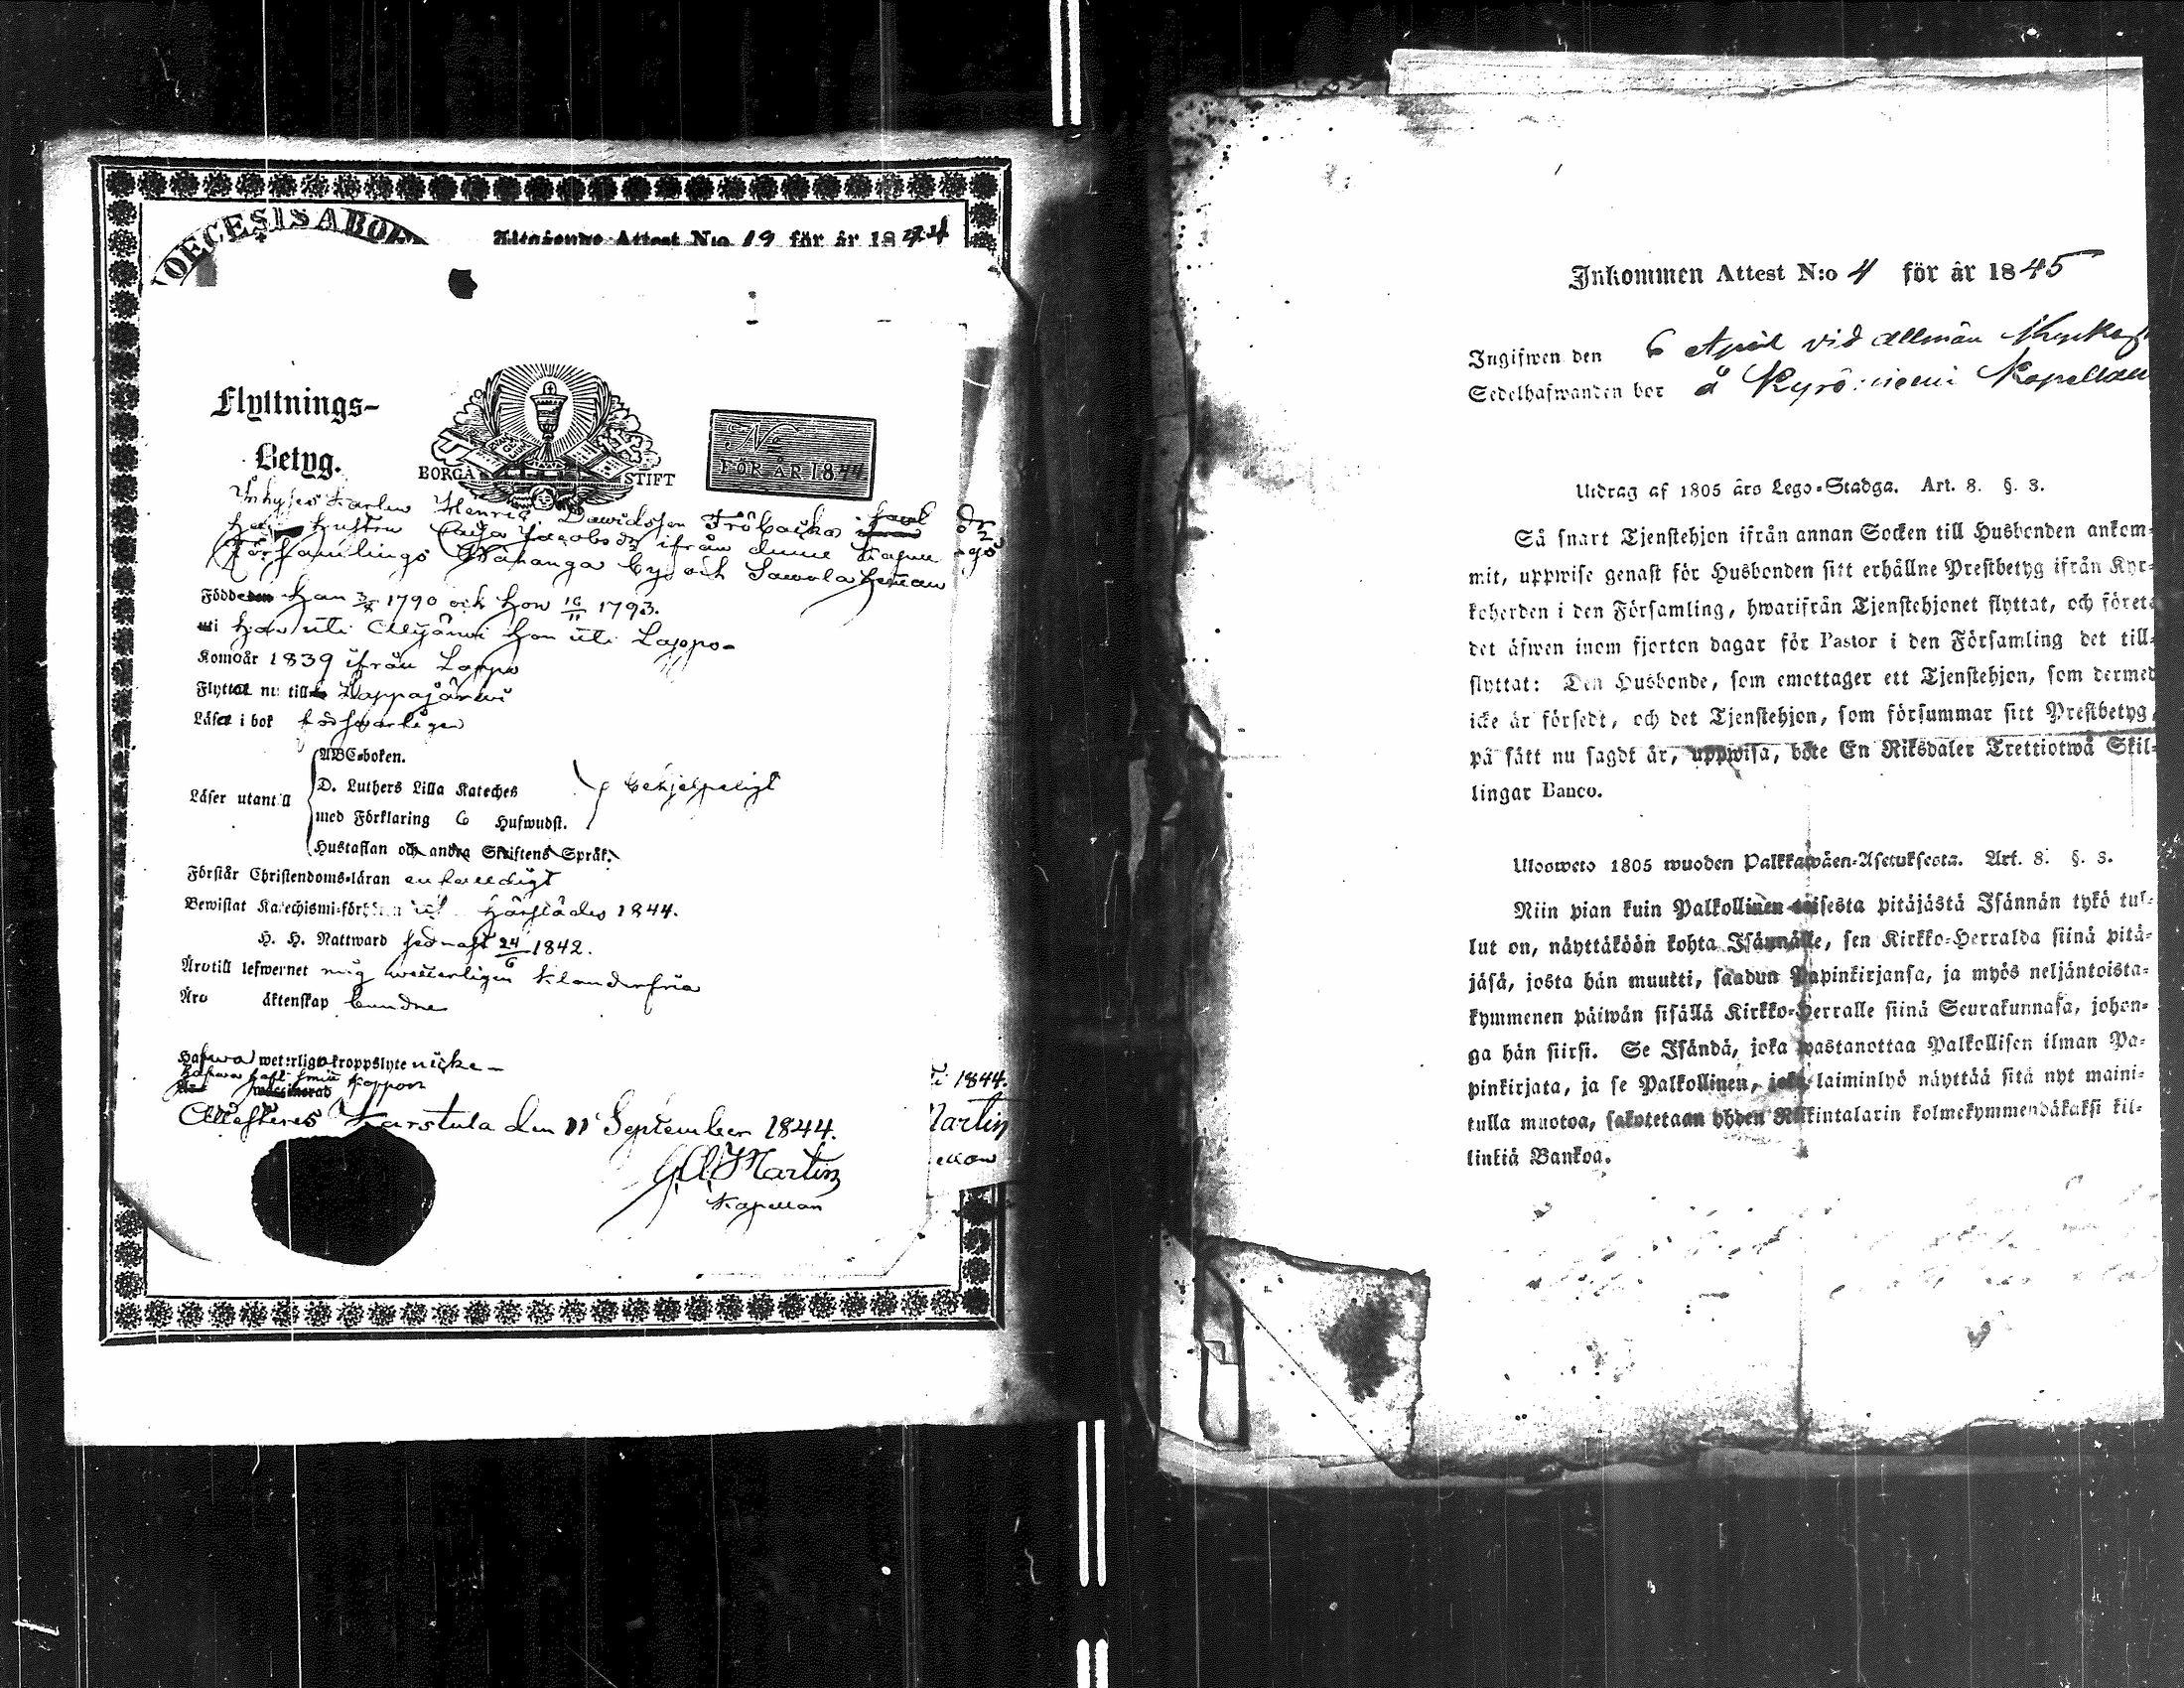 DIOECESIS ABOENS
Utgående Attest N:o 19 för år 1844
Flyttnings-
Betyg.
BORGÅ STIFT
No
FÖR ÅR 1844
Inhyses karlen Henric Davidsson Fröbacka
hustru Caisa Jacobsdr ifrån denne Capell
Församlings Wahanga by och Sawola heman
Födde han 3/x 1790 och hon 16/11 1793.
uti han uti Alajärwi hon uti Lappo-
Kom år 1839 ifrån Lappo
Flyttat nu till Lappajärwi
Läser i bok förswarligen
Läser utantill
ABC-boken.
D. Luthers Lilla Kateches
med Förklaring 6 Hufwudst.
Hustaflan och andra Skriftens Språk.
behjelpeligt
Förstår Christendoms-läran enfaldigt
Bewistat Katechismi-förhören til Härstädes 1844.
H. H. Nattward sednast 24/6 1842.
Äro till lefwernet mig weterligen klanderfria
Äro äktenskap bundne
Hafwa weterliga kroppslyte nicke-
Hafwa haft smitt koppor
Attesteres Karstula den 11 September 1844.
G.A. Martin
Kapellan
1844.
Martin
ellan
Inkommen Attest N:o 4 för år 1845
Ingifwen den 6 April vid allmän
Sedelhafwanden bor å Kyrö
Utdrag af 1805 års Lego-Stadga. Art. 8. §. 3.
Så snart Tjenstehjon ifrån annan Socken till Husbonden ankom-
mit, uppwise genast för Husbonden sitt erhållne Prestbetyg ifrån Kyr-
koherden i den Församling, hwarifrån Tjenstehjonet flyttat, och förete
det äfwen inom fjorton dagar för Pastor i den Församling det till-
flyttat: Den Husbonde, som emottager ett Tjenstehjon, som dermed
icke är försedt, och det Tjenstehjon, som försummar sitt Prestbetyg,
på sätt nu sagdt är, uppwisa, böte En Riksdaler Trettiotwå Skil-
lingar Banco.
Ulosweto 1805 wuoden Palkkawäen-Asetuksesta. Art. 8. §. 3.
Niin pian kuin Palkollinen toisesta pitäjästä Isännän tykö tul-
lut on, näyttäköön kohta Isännälle, sen Kirkko-Herralda siinä pitä-
jäsä, josta hän muutti, saadun Papinkirjansa, ja myös neljäntoista-
kymmenen päiwän sisällä Kirkko-Herralle siinä Seurakunnasa, johon-
ga hän siirsi. Se Isändä, joka wastanottaa Palkollisen ilman Pa-
pinkirjata, ja se Palkollinen, joka laiminlyö näyttää sitä nyt maini-
tulla muotoa, sakotetaan yhden Riikintalarin kolmekymmendäkaksi kil-
linkiä Bankoa.